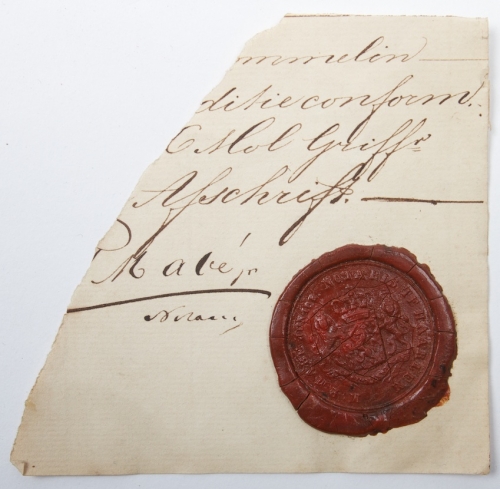 mmelin
ditie conform.
E Mol Griffr
Afschrift.
Mabé jr
Notaris